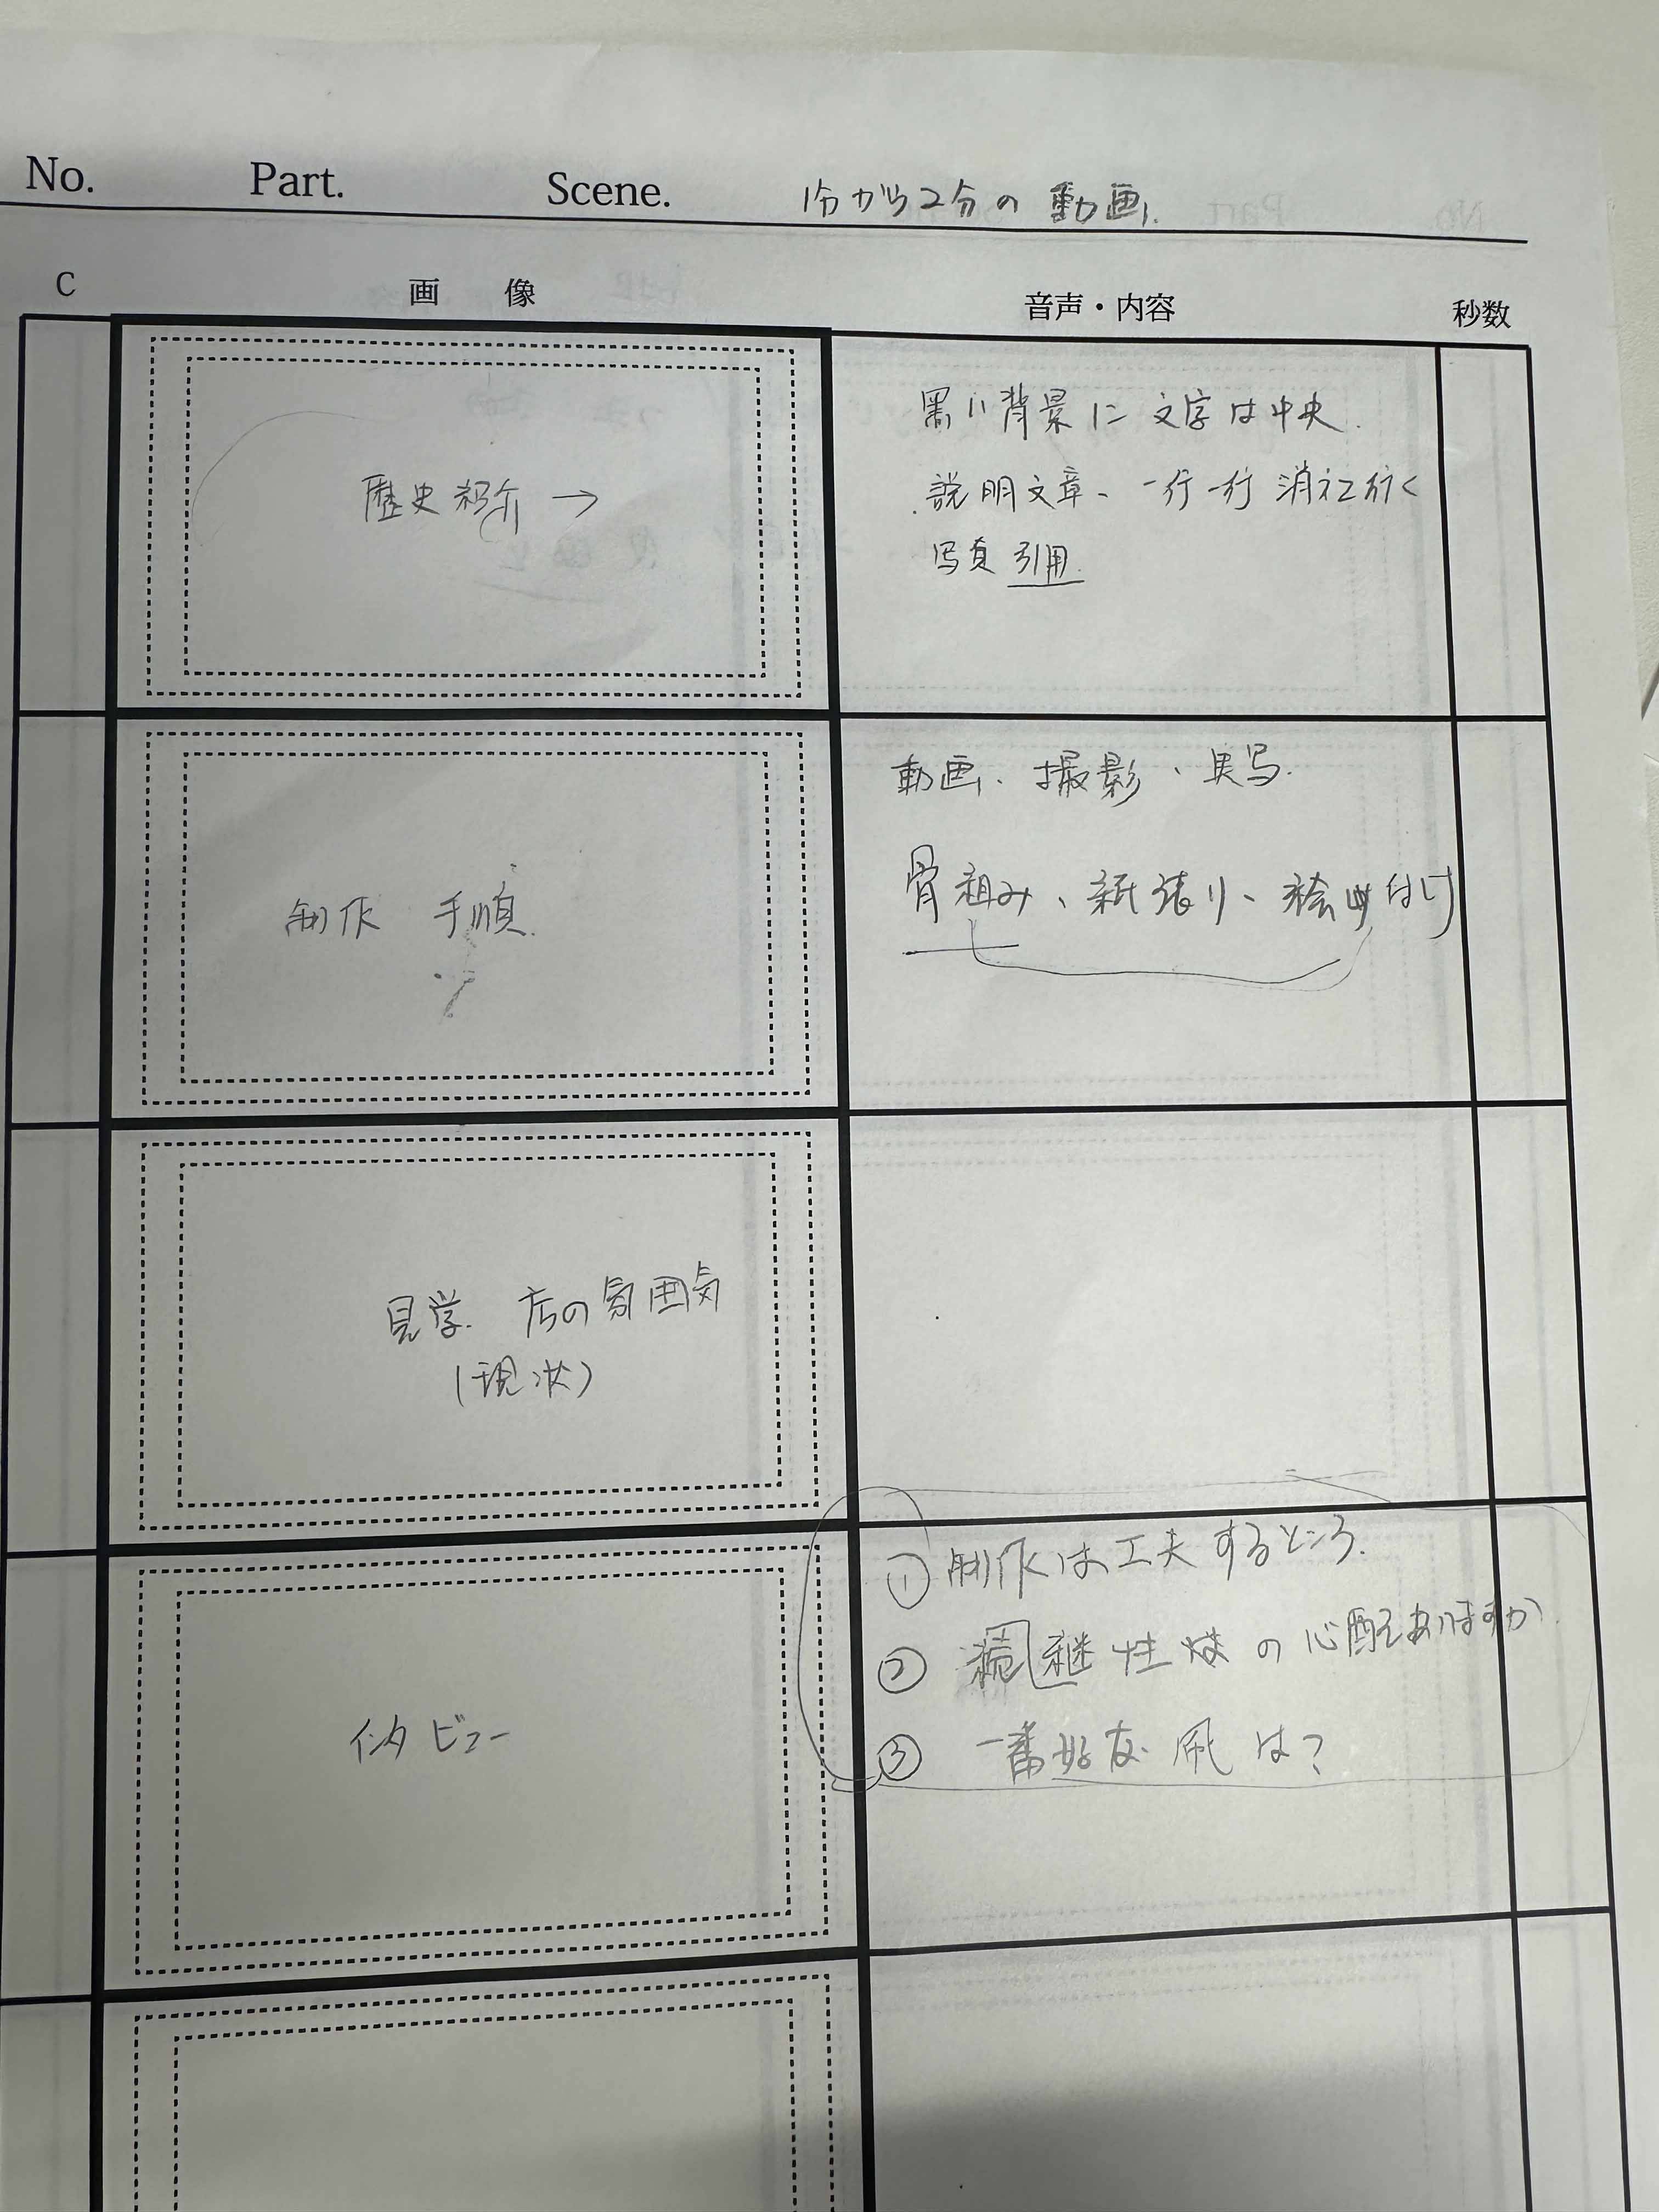 No. Part. Scene. 1分から2分の動画.
C 画像 音声・内容 秒数
歴史紹介→
黒い背景に文字は中央.
説明文章、一行一行消えて行く
写真引用
制作 手順.
動画、撮影、実写.
骨組み、紙張り、絵付け
見学. 店の雰囲気
(現状)
インタビュー
① 制作は工夫するところ.
② 継性 の心配はありますか
③ 一番好な凧は?